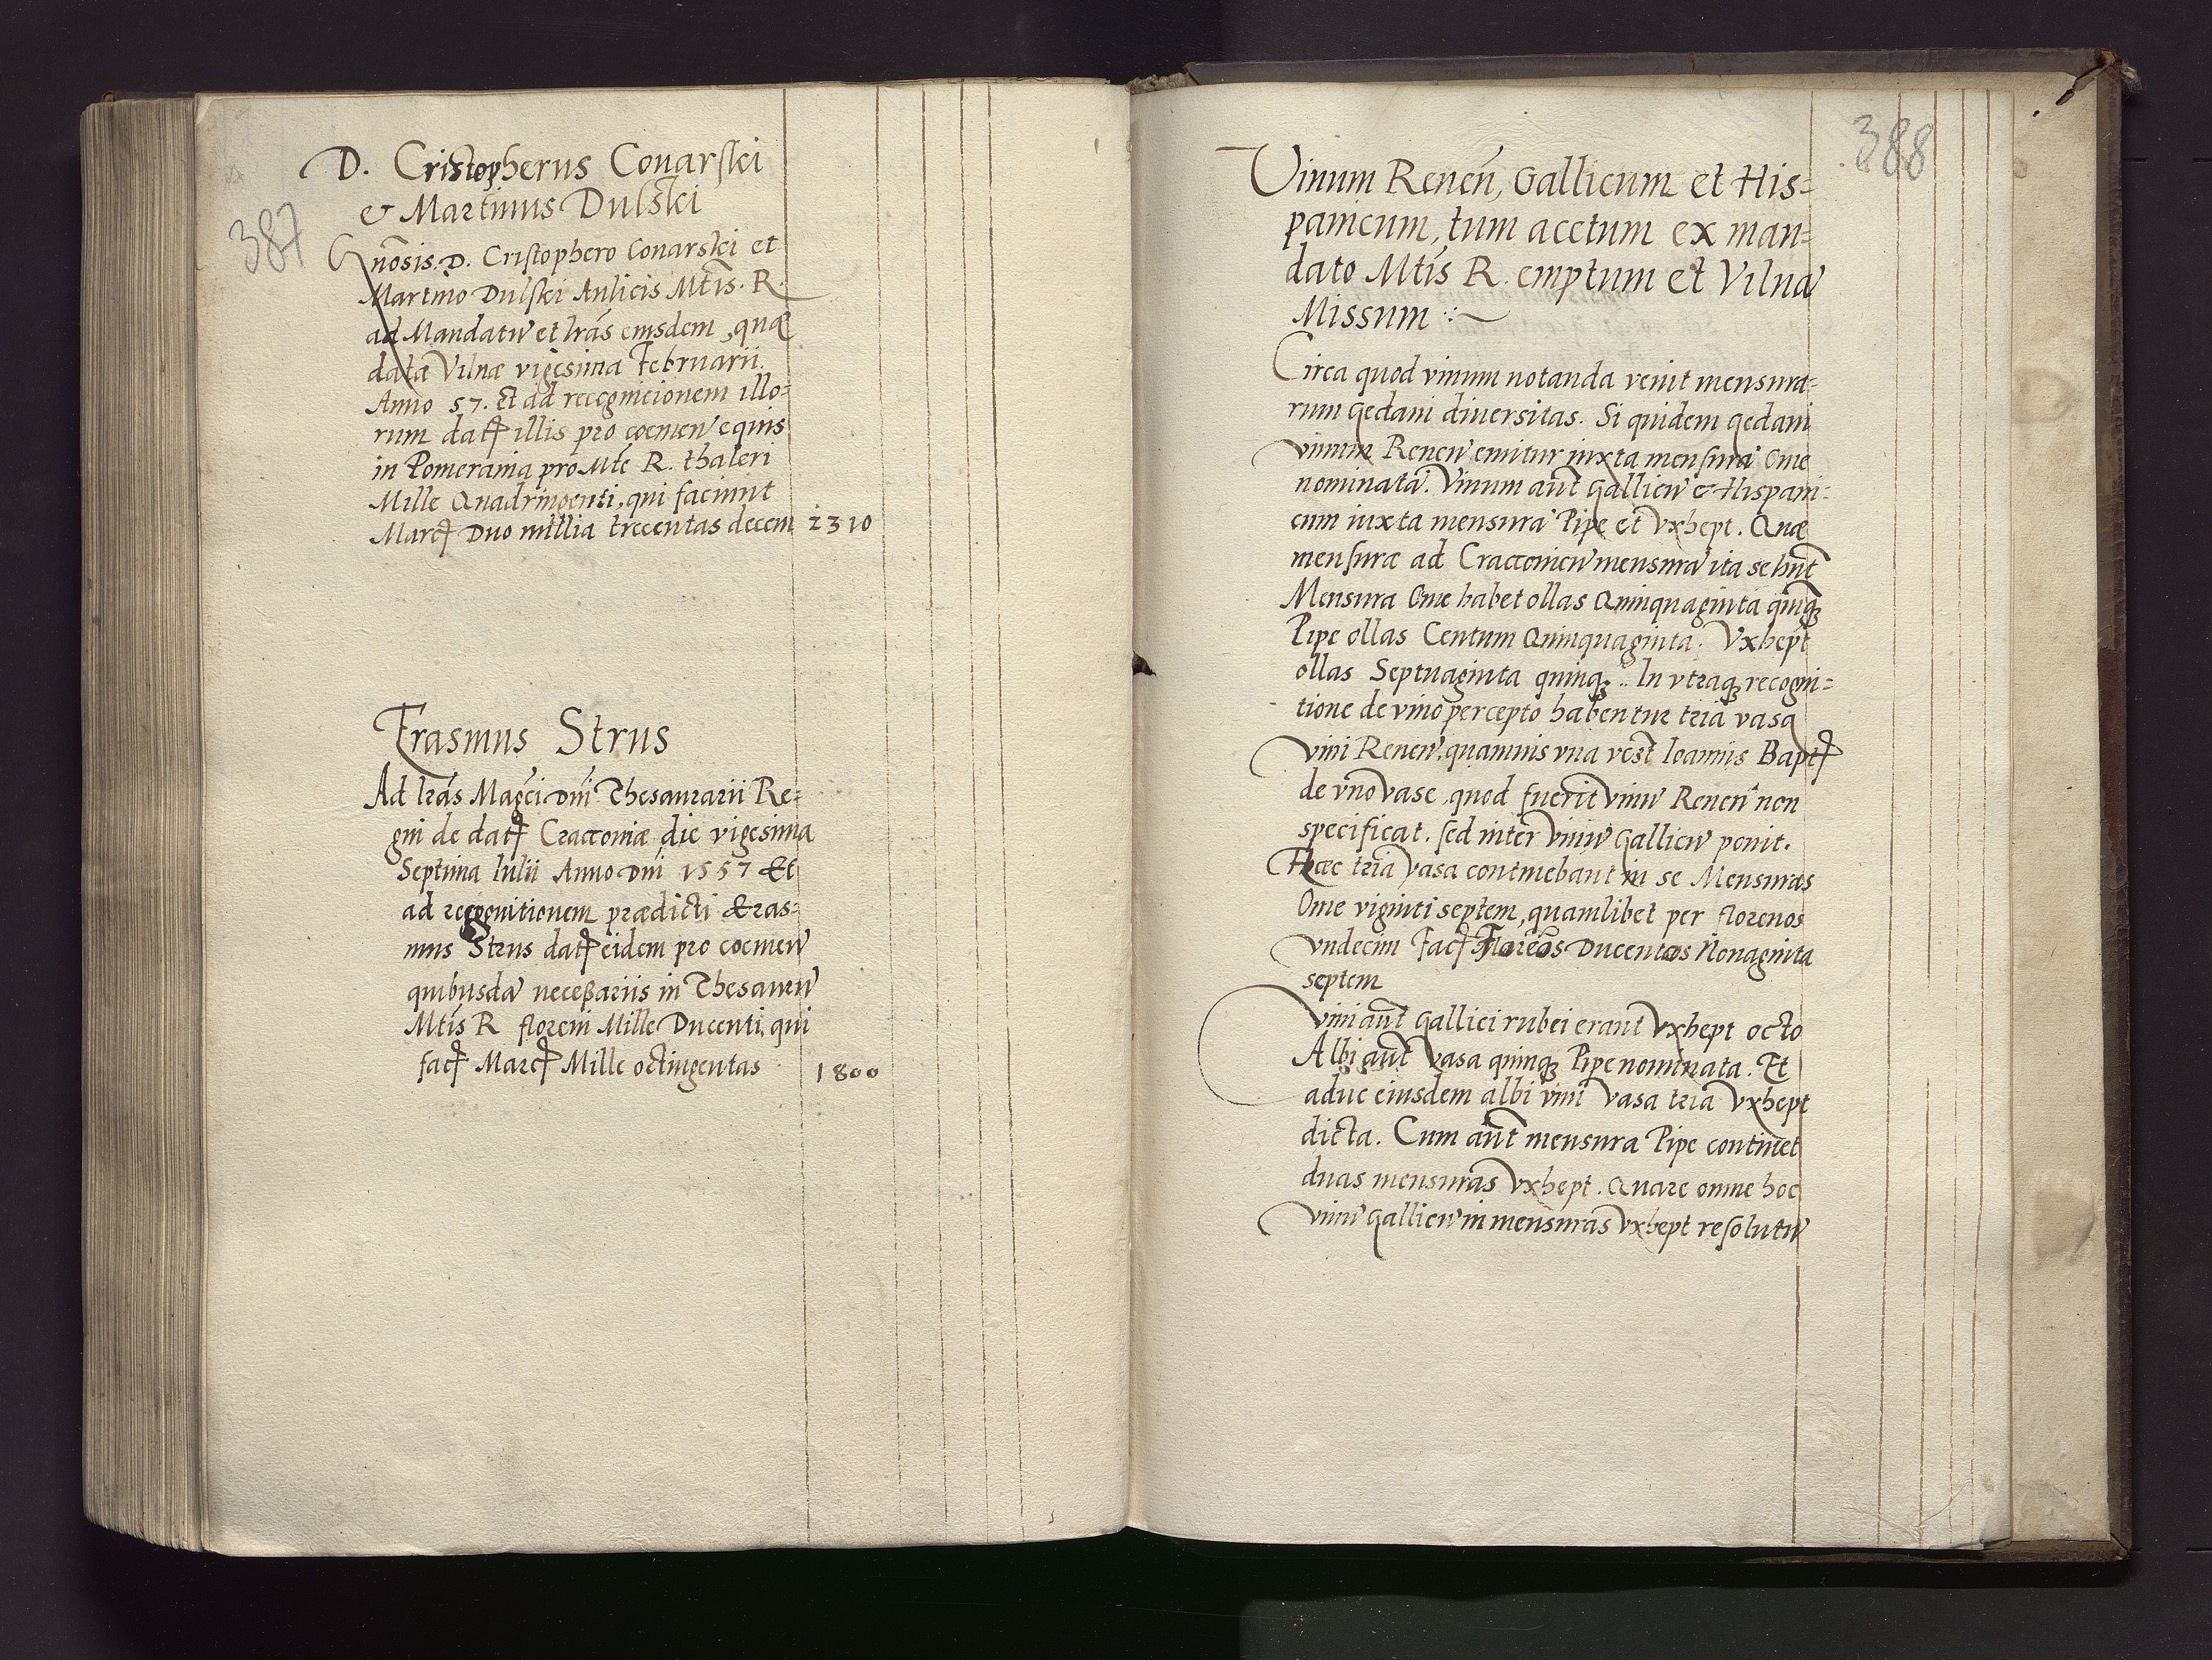 387
D. Cristopherus Conarski
& Martinus Dulski
Gnōsis. D. Cristophero Conarski et
Martino Dulski Aulicis Mtīs. R.
ad Mandatū et lrās eiusdem, quæ
data Vilnæ vigesima Februarii.
Anno 57. Et ad recognicionem illo=
rum datꝭ illis pro coemen̄ equis
in Pomerania pro Mte R. thaleri
Mille Quadringenti, qui faciunt
Marcꝭ Duo millia trecentas decem 2310
Erasmus Strus
Ad lrās Magci Dni Thesaurarii Re=
gni de datꝭ Cracoviæ die vigesima
Septima Iulii Anno Dni 1557 Et
ad recognitionem prædicti Eras=
mus Strus datꝭ eidem pro coemen̄
quibusdā neceßariis in Thesaurū
Mtīs R floreni Mille Ducenti, qui
facꝭ Marcꝭ Mille octingentas 1800
388
Vinum Renen̄, Gallicum et His=
panicum, tum acetum ex man=
dato Mtīs R. emptum et Vilnā
Missum
Circa quod vinum notanda venit mensura=
rum gedani diversitas. Si quidem gedani
vinum Renen̄ emitur iuxta mensurā Ome
nominatā. Vinum aūt Gallicū & Hispani=
cum iuxta mensurā Pipe et Vxhept. Quæ
mensuræ ad Cracovien̄ mensurā ita se hūt
Mensura Ome habet ollas Quinquaginta quinqꝫ
Pipe ollas Centum Quinquaginta. Vxhept
ollas Septuaginta quinqꝫ. In vtraqꝫ recogni=
tione de vino percepto habentur tria vasa
vini Renen̄, quamuis vna vest Ioannis Baptꝭ
de vno vase, quod fuerit vinū Renen̄ non
specificat. sed inter vinū Gallicū ponit.
Hæc tria vasa continebant in se Mensuras
Ome viginti septem, quamlibet per florenos
vndecim Facꝭ Florēos Ducentos Nonaginta
septem
Vini aūt Gallici rubei erant Vxhept octo
Albi aūt vasa quinqꝫ Pipe nominata. Et
aduc eiusdem albi vini vasa tria Vxhept
dicta. Cum aūt mensura Pipe continet
duas mensuras Vxhept. Quare omne hoc
vinū Gallicū in mensuras Vxhept resolutū